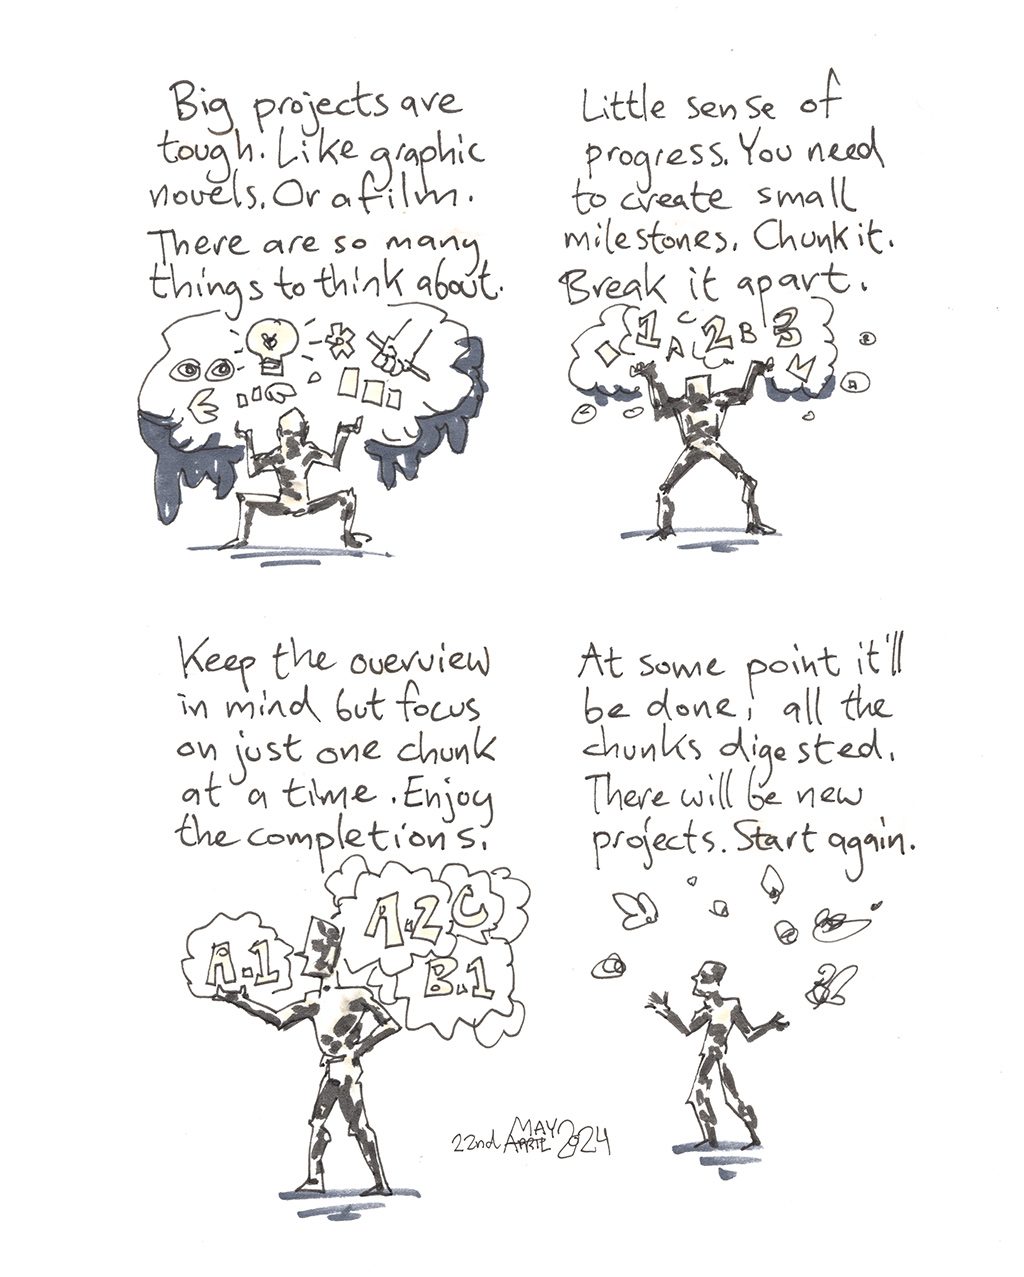 Big projects are
tough. Like graphic
novels. Or a film.
There are so many
things to think about.
Little sense of
progress. You need
to create small
milestones. Chunk it.
Break it apart.
1 C 2 B 3
A
Keep the overview
in mind but focus
on just one chunk
at a time. Enjoy
the completions.
A.1
A.2 C
B.1
At some point it'll
be done; all the
chunks digested.
There will be new
projects. Start again.
MAY
22nd APRIL 2024